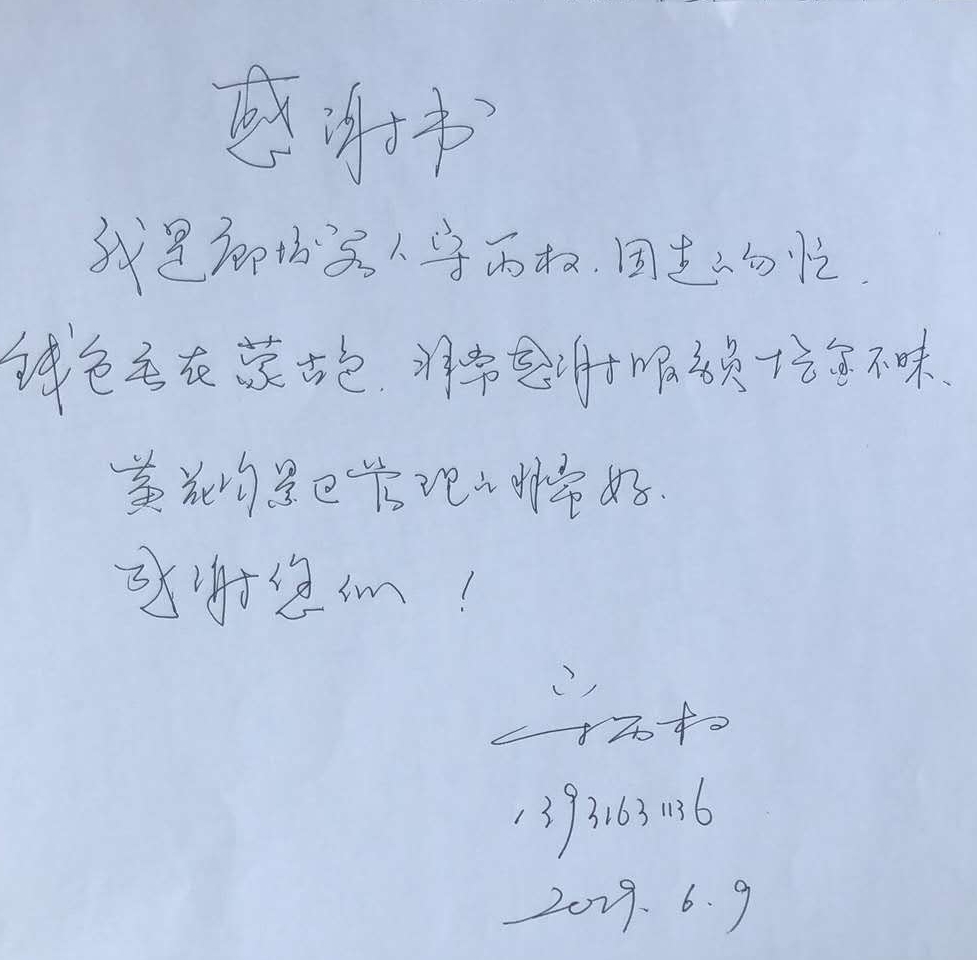 感谢书
我是廊坊客人宁丙权.因走的匆忙.
钱包丢在蒙古包.非常感谢服务员拾金不昧、
黄花沟景区管理的非常好.
感谢您们!
宁丙权
13931631136
2019.6.9